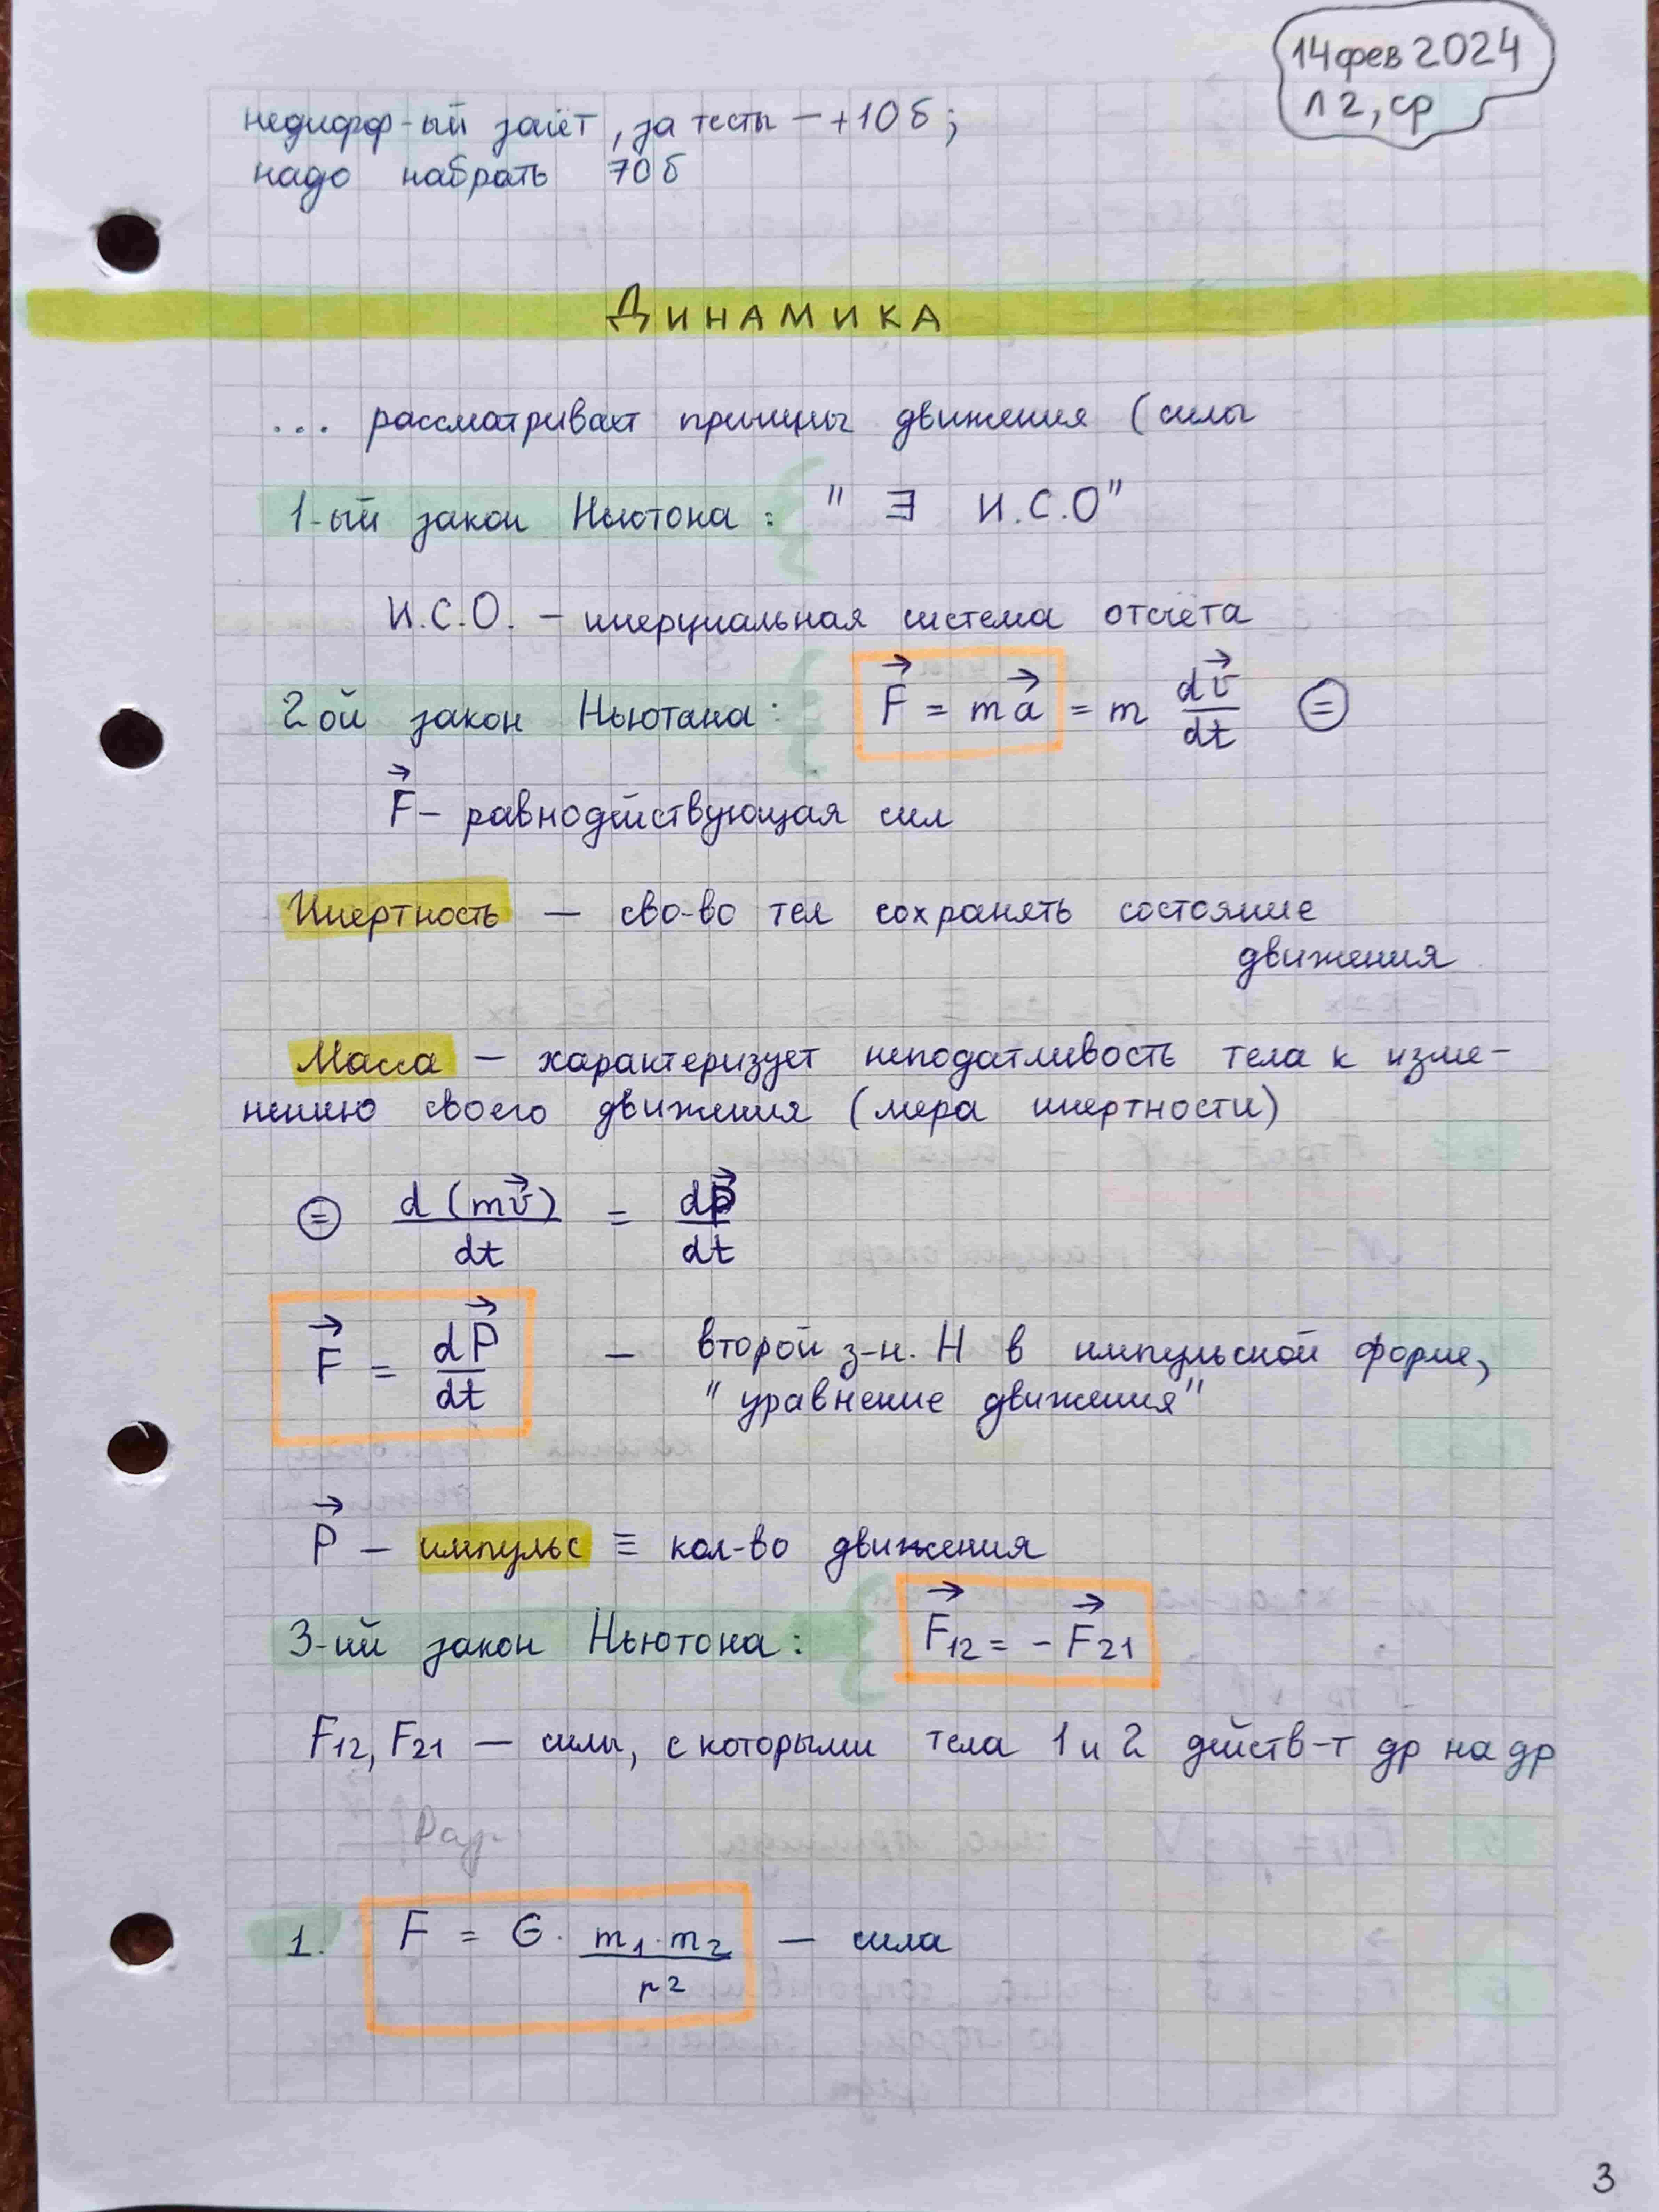 14 фев 2024
Л 2, ср
недифф-ый зачёт, за тесты — +10 б;
надо набрать 70 б
ДИНАМИКА
... рассматривает принципы движения (силы
1-ый закон Ньютона: " ∃ И.С.О"
И.С.О. – инерциальная система отсчёта
2 ой закон Ньютана: F⃗ = ma⃗ = m dv⃗/dt ⊜
F⃗ – равнодействующая сил
Инертность — сво-во тел сохранять состояние
движения
Масса — характеризует неподатливость тела к изме-
нению своего движения (мера инертности)
⊜ d(mv⃗)/dt = dp⃗/dt
F⃗ = dP⃗/dt — второй з-н. Н в импульсной форме,
"уравнение движения"
P⃗ — импульс ≡ кол-во движения
3-ий закон Ньютона: F⃗12 = - F⃗21
F12, F21 — силы, с которыми тела 1 и 2 действ-т др на др
1. F = G · m1·m2/r² — сила
3